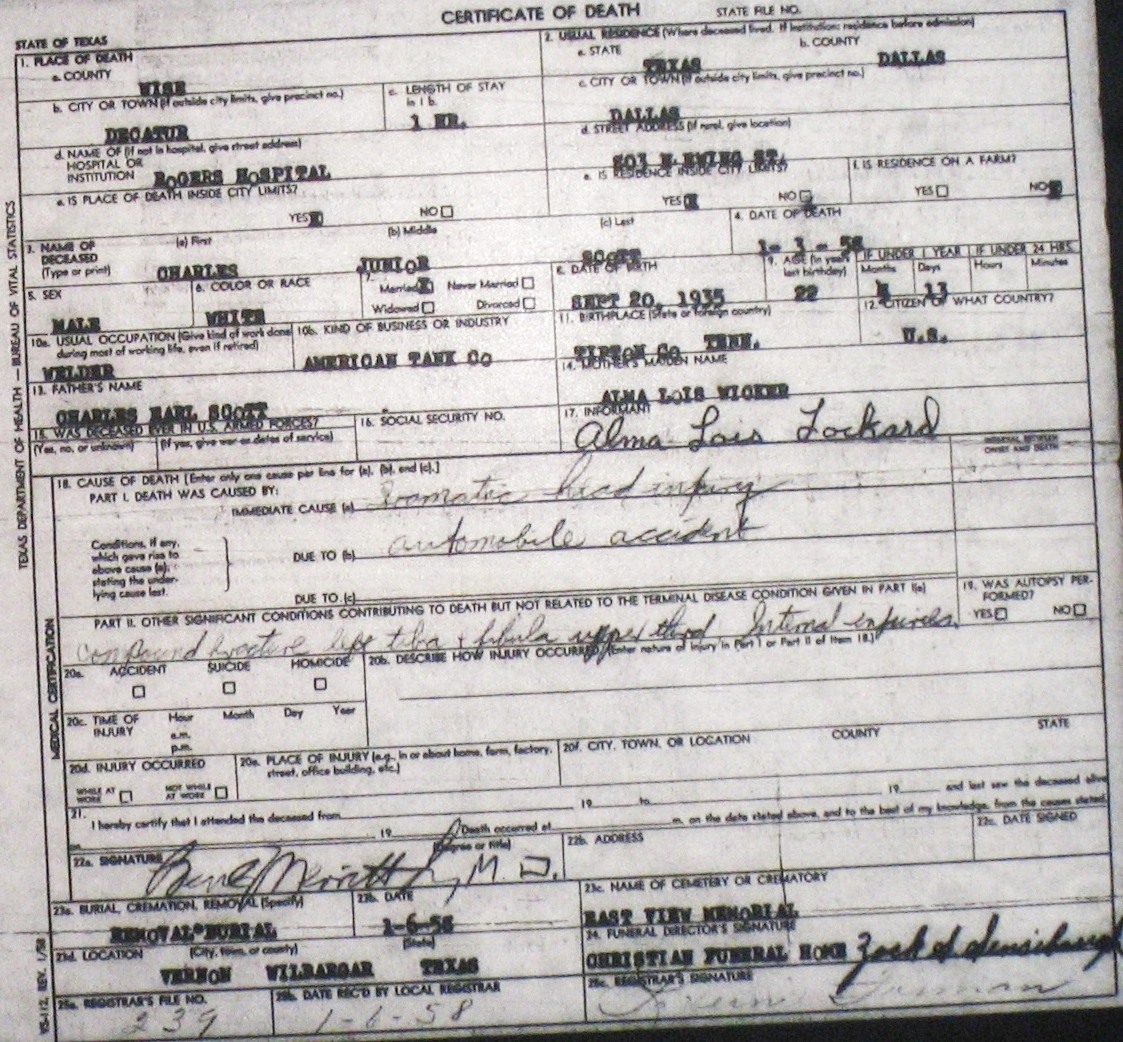 CERTIFICATE OF DEATH
STATE FILE NO.
STATE OF TEXAS
1. PLACE OF DEATH
a. COUNTY
WISE
2. USUAL RESIDENCE (Where deceased lived. If institution: residence before admission)
a. STATE
TEXAS
b. COUNTY
DALLAS
b. CITY OR TOWN (If outside city limits, give precinct no.)
DECATUR
c. LENGTH OF STAY in 1 b.
1 HR.
c. CITY OR TOWN (If outside city limits, give precinct no.)
DALLAS
d. NAME OF (If not in hospital, give street address)
HOSPITAL OR
INSTITUTION ROGERS HOSPITAL
d. STREET ADDRESS (If rural, give location)
803 N EWING ST.
e. IS PLACE OF DEATH INSIDE CITY LIMITS?
YES NO
e. IS RESIDENCE INSIDE CITY LIMITS?
YES NO
f. IS RESIDENCE ON A FARM?
YES NO
3. NAME OF DECEASED
(Type or print)
(a) First
CHARLES
(b) Middle
JUNIOR
(c) Last
SCOTT
4. DATE OF DEATH
1- 3 - 58
5. SEX
MALE
6. COLOR OR RACE
WHITE
7. Married Never Married
Widowed Divorced
8. DATE OF BIRTH
SEPT 20, 1935
9. AGE (In years last birthday)
22
IF UNDER 1 YEAR
Months Days
13
IF UNDER 24 HRS.
Hours Minutes
10a. USUAL OCCUPATION (Give kind of work done during most of working life, even if retired)
WELDER
10b. KIND OF BUSINESS OR INDUSTRY
AMERICAN TANK CO
11. BIRTHPLACE (State or foreign country)
TIPTON CO TENN.
12. CITIZEN OF WHAT COUNTRY?
U.S.
13. FATHER'S NAME
CHARLES EARL SCOTT
14. MOTHER'S MAIDEN NAME
ALMA LOIS WICKER
15. WAS DECEASED EVER IN U.S. ARMED FORCES?
(Yes, no, or unknown) (If yes, give war or dates of service)
16. SOCIAL SECURITY NO.
17. INFORMANT
Alma Lois Lockard
18. CAUSE OF DEATH [Enter only one cause per line for (a), (b), and (c).]
INTERVAL BETWEEN ONSET AND DEATH
PART I. DEATH WAS CAUSED BY:
IMMEDIATE CAUSE (a) head injury
Conditions, if any, which gave rise to above cause (a), stating the underlying cause last.
DUE TO (b) automobile accident
DUE TO (c)
PART II. OTHER SIGNIFICANT CONDITIONS CONTRIBUTING TO DEATH BUT NOT RELATED TO THE TERMINAL DISEASE CONDITION GIVEN IN PART I(a)
compound fracture left tibia & fibula upper third Internal injuries
19. WAS AUTOPSY PERFORMED?
YES NO
20a. ACCIDENT SUICIDE HOMICIDE
20b. DESCRIBE HOW INJURY OCCURRED (Enter nature of injury in Part I or Part II of Item 18.)
20c. TIME OF INJURY
Hour Month Day Year
a.m.
p.m.
20d. INJURY OCCURRED
WHILE AT WORK NOT WHILE AT WORK
20e. PLACE OF INJURY (e.g., in or about home, farm, factory, street, office building, etc.)
20f. CITY, TOWN, OR LOCATION COUNTY STATE
21.
I hereby certify that I attended the deceased from 19 to 19 and last saw the deceased alive
on 19 Death occurred at m. on the date stated above, and to the best of my knowledge, from the causes stated.
22a. SIGNATURE (Degree or title)
M.D.
22b. ADDRESS
22c. DATE SIGNED
23a. BURIAL, CREMATION, REMOVAL (Specify)
REMOVAL-BURIAL
23b. DATE
1-6-58
23c. NAME OF CEMETERY OR CREMATORY
EAST VIEW MEMORIAL
23d. LOCATION (City, town, or county) (State)
VERNON WILBARGAR TEXAS
24. FUNERAL DIRECTOR'S SIGNATURE
CHRISTIAN FUNERAL HOME
25a. REGISTRAR'S FILE NO.
239
25b. DATE REC'D BY LOCAL REGISTRAR
1-6-58
25c. REGISTRAR'S SIGNATURE
TEXAS DEPARTMENT OF HEALTH — BUREAU OF VITAL STATISTICS
MEDICAL CERTIFICATION
VS-112, REV. 1/58